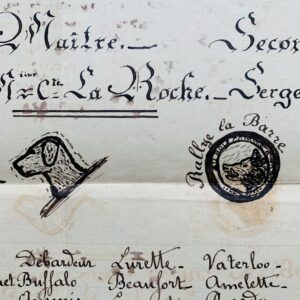 Maître._ Secon
Mr Cte La Roche._ Serge
Rallye la Barre
Débardeur Lurette_ Vaterloo_
Buffalo Beaufort Amelette_